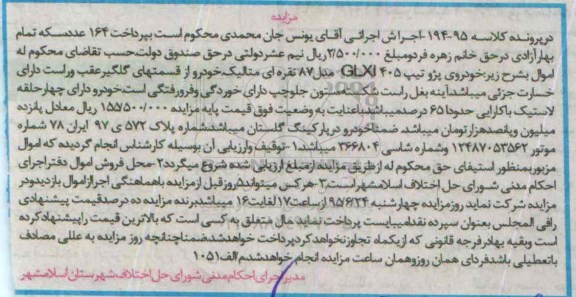 مزایده
درپرونده کلاسه ۹۵-۱۹۴ -اجراش اجرائی آقای یونس جان محمدی محکوم است بپرداخت ۱۶۴ عددسکه تمام
بهارآزادی درحق خانم زهره فردومبلغ ۲/۵۰۰/۰۰۰ریال نیم عشردولتی درحق صندوق دولت حسب تقاضای محکوم له
اموال بشرح زیر:خودروی پژو تیپ GLXI ۴۰۵ مدل۸۷ نقره ای متالیک.خودرو از قسمتهای گلگیرعقب وراست دارای
خسارت جزئی میباشدآینه بغل راست شکسته ستون جلوچپ دارای خوردگی وفرورفتگی است،خودرو دارای چهارحلقه
لاستیک باکارایی حدودا۶۵ درصدمیباشدباعنایت به وضعیت فوق قیمت پایه مزایده ۱۵۵/۵۰۰/۰۰۰ ریال معادل پانزده
میلیون وپانصدهزارتومان میباشد ضمناخودرو درپارکینگ گلستان میباشدشماره پلاک ۵۷۲ ی ۹۷ ایران ۷۸ شماره
موتور ۱۲۴۸۷۰۵۳۵۶۲ وشماره شاسی ۳۶۶۸۰۴ میباشد۱-توقیف وارزیابی آن بوسیله کارشناس انجام گردیده که اموال
مزبوربمنظور استیفای حق محکوم له ازطریق مزایده ازمبلغ ارزیابی شده شروع میگردد۲-محل فروش اموال دفتراجرای
احکام مدنی شورای حل اختلاف اسلامشهراست۳-هرکس میتواند۵روزقبل ازمزایده باهماهنگی اجراازاموال بازدیدودر
مزایده شرکت نماید روزمزایده چهارشنبه ۹۵/۶/۲۴ ازساعت۱۷لغایت۱۶ میباشدبرنده مزایده ده درصدقیمت پیشنهادی
رافی المجلس بعنوان سپرده نقدامیبایست پرداخت نماید مال متعلق به کسی است که بالاترین قیمت راپیشنهادکرده
است وبقیه بهادرفرجه قانونی که ازیکماه تجاوزنخواهدکردپرداخت خواهدشدضمناچنانچه روز مزایده به عللی مصادف
باتعطیلی باشدفردای همان روزوهمان ساعت مزایده انجام خواهدشد.م/الف۱۰۵۱
مدیراجرای احکام مدنی شورای حل اختلاف شهرستان اسلامشهر